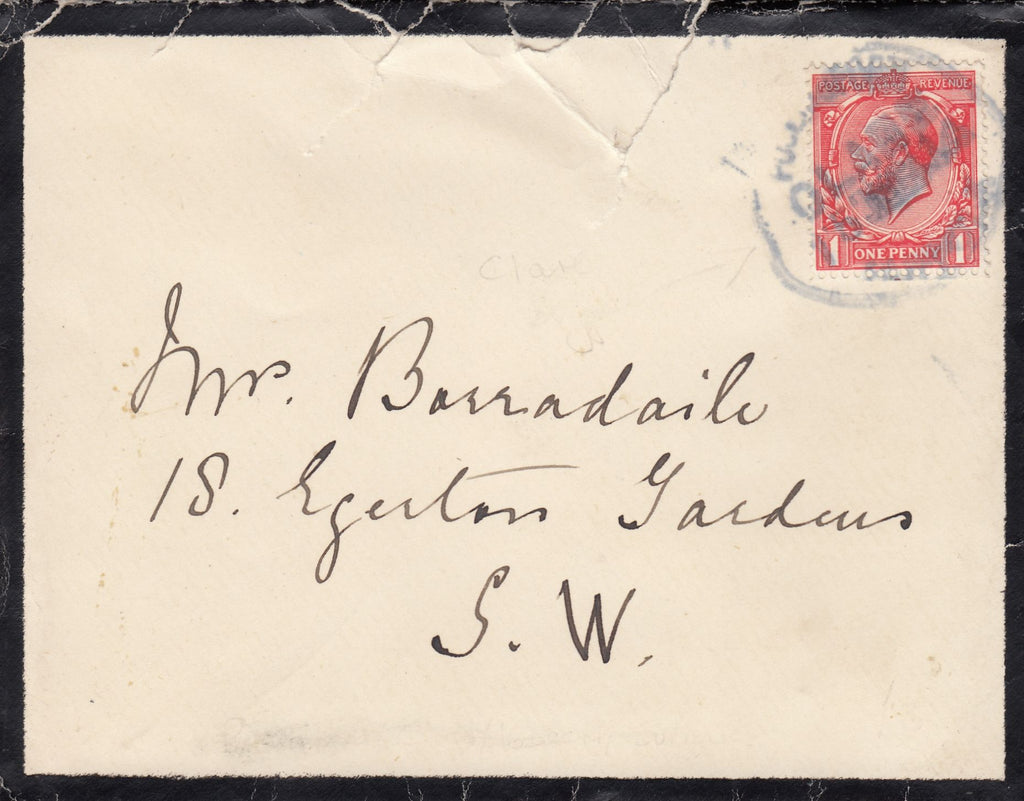 POSTAGE REVENUE
1 ONE PENNY 1
Mrs. Borradaile
18. Egerton Gardens
S. W.